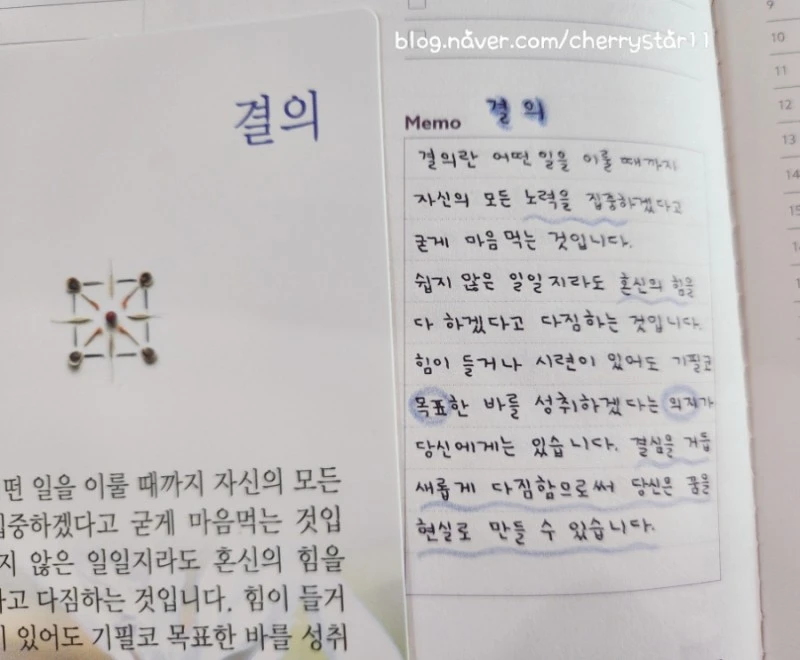 blog.naver.com/cherrystar11
결의
떤 일을 이룰 때까지 자신의 모든
집중하겠다고 굳게 마음먹는 것입
지 않은 일일지라도 혼신의 힘을
하고 다짐하는 것입니다. 힘이 들거
이 있어도 기필코 목표한 바를 성취
Memo 결의
결의란 어떤 일을 이룰 때까지
자신의 모든 노력을 집중하겠다고
굳게 마음먹는 것입니다.
쉽지 않은 일일지라도 혼신의 힘을
다 하겠다고 다짐하는 것입니다.
힘이 들거나 시련이 있어도 기필코
목표한 바를 성취하겠다는 의지가
당신에게는 있습니다. 결심을 거듭
새롭게 다짐함으로써 당신은 꿈을
현실로 만들 수 있습니다.
9
10
11
12
13
14